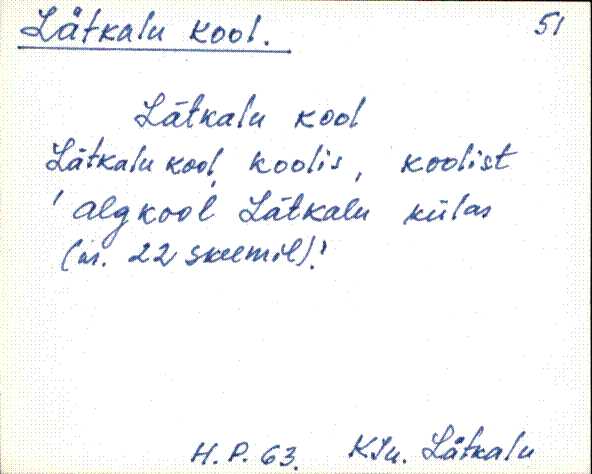 Lätkalu kool. 51
Lätkalu kool
Lätkalu kool, koolis, koolist
'algkool Lätkalu külas
(nr. 22 skeemil).'
H.P. 63. KJn. Lätkalu